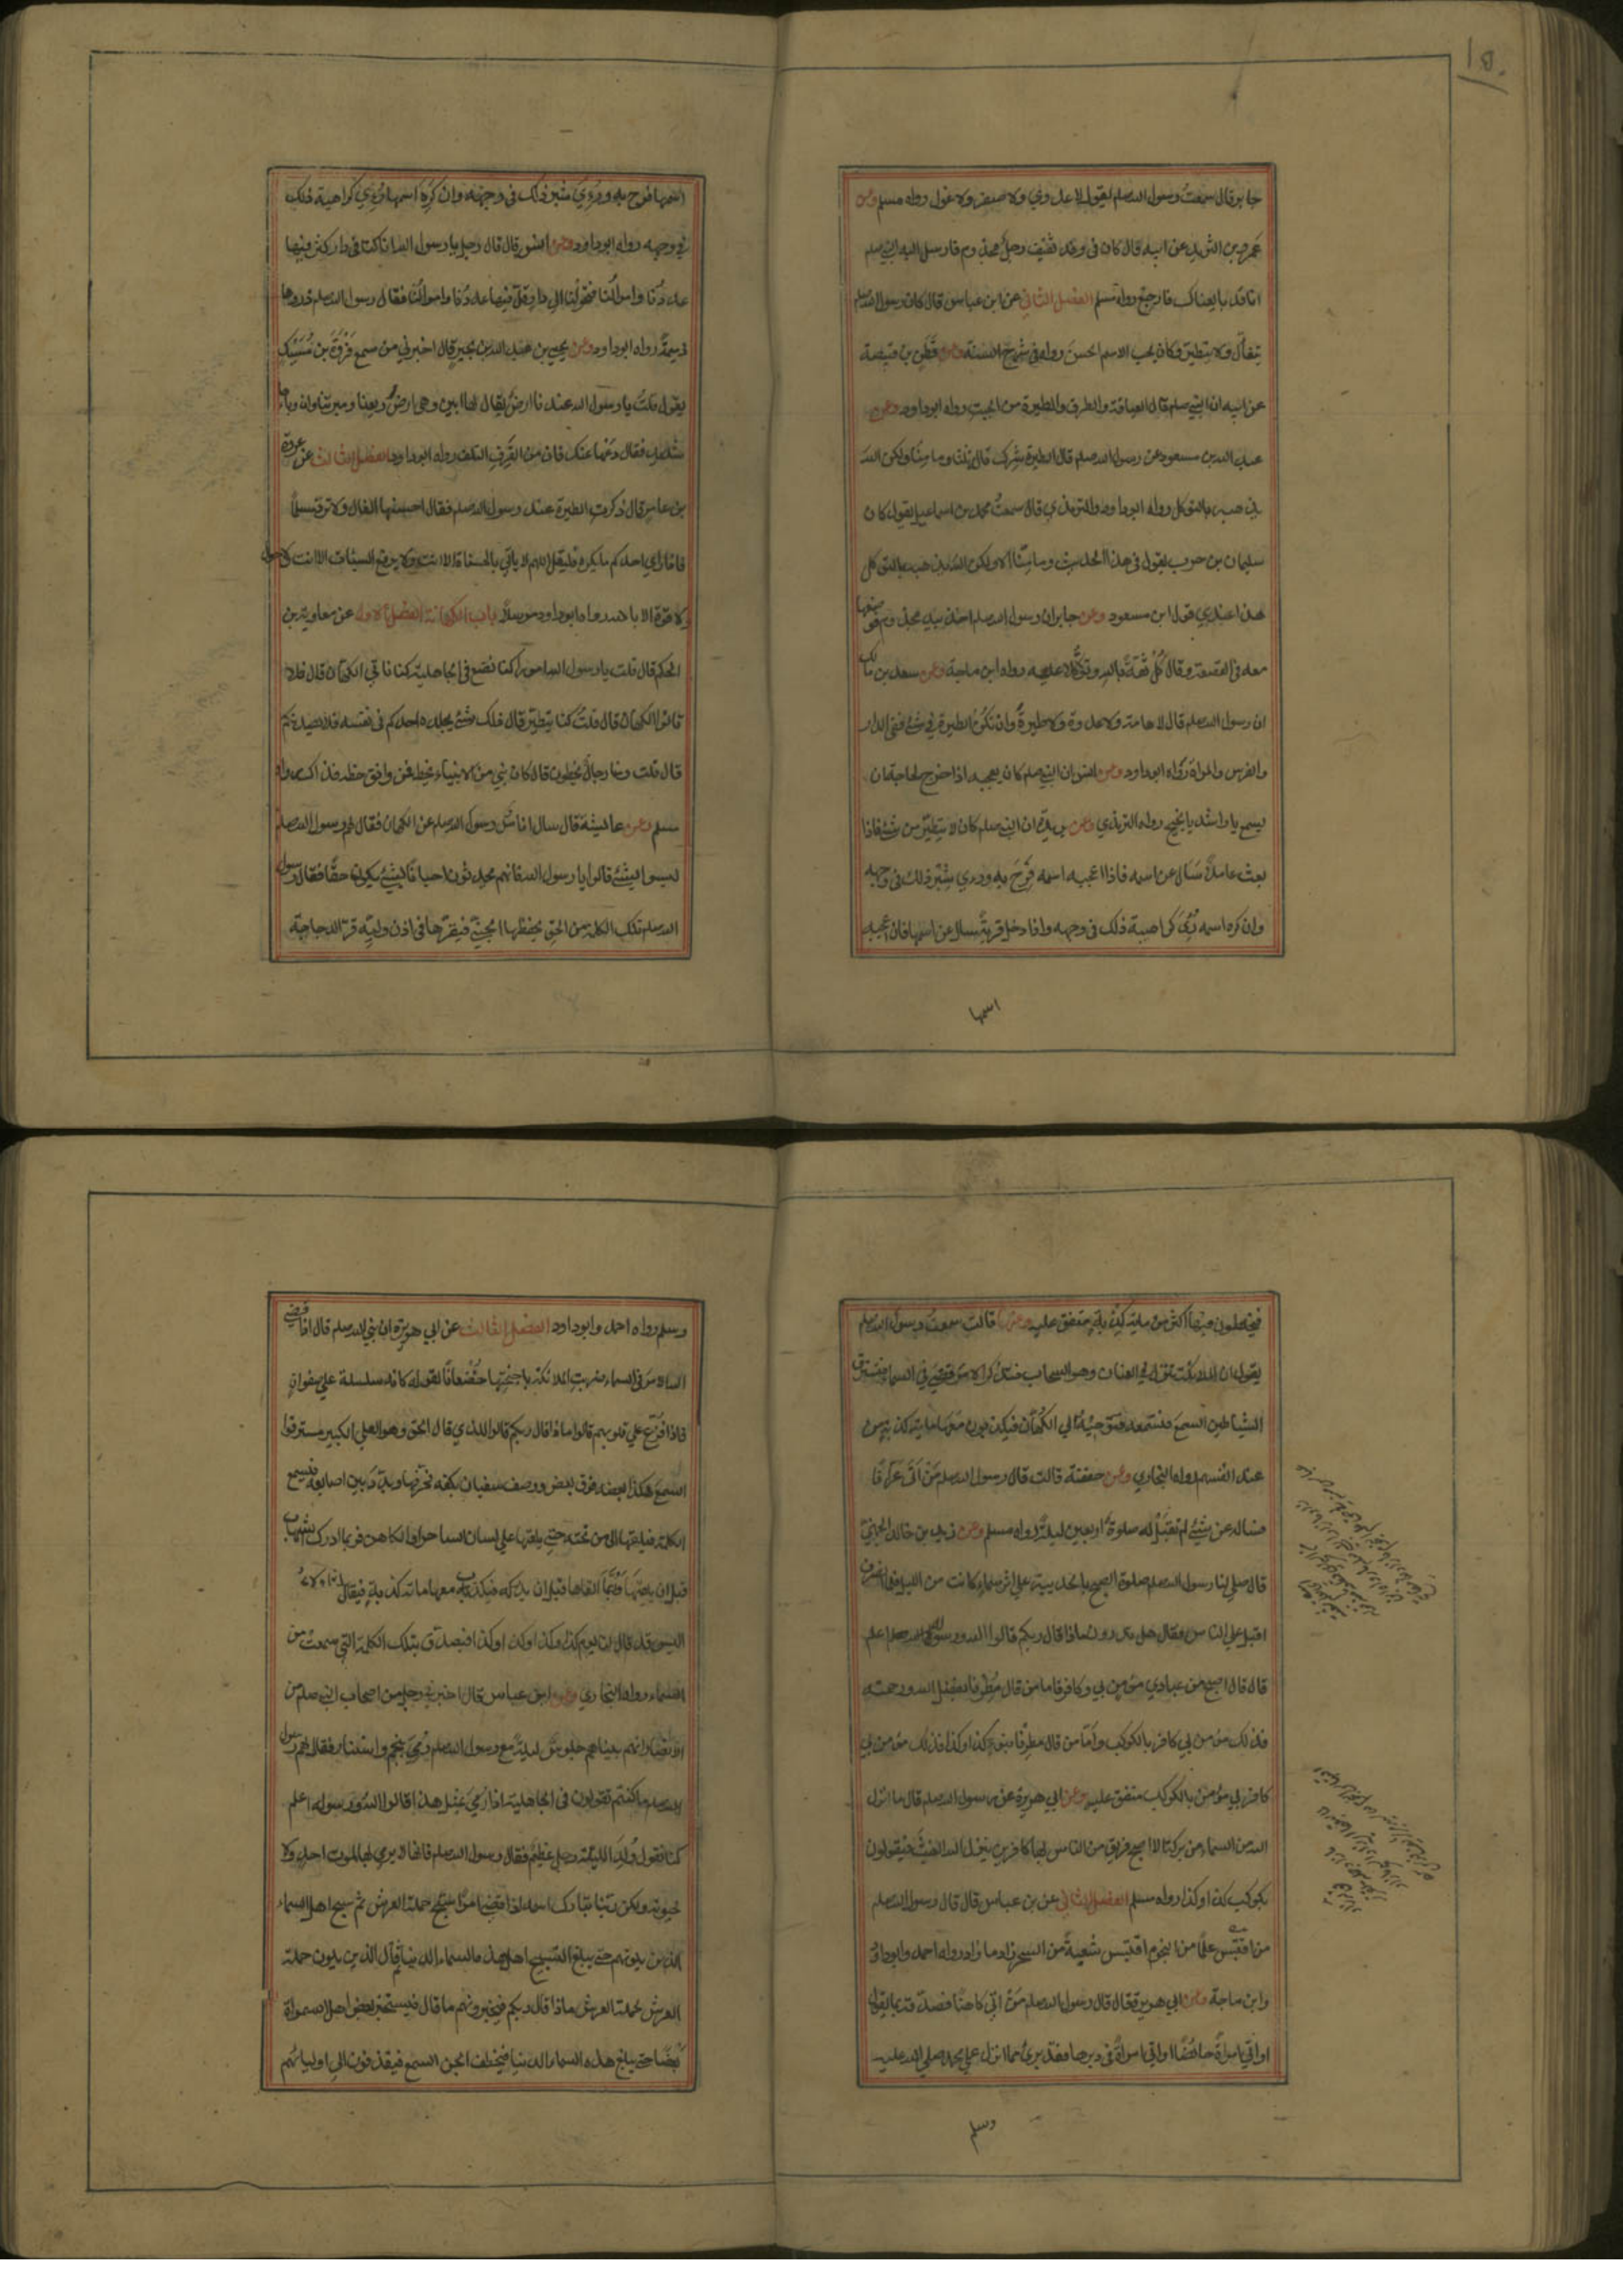 جابر قال سمعت رسول الله صلعم يقول لا عدوي ولا صفر ولا غول رواه مسلم وعن
عمرو بن الشريد عن ابيه قال كان في وفد ثقيف رجل مجذوم فارسل اليه النبي صلعم
انا قد بايعناك فارجع رواه مسلم الفصل الثاني عن ابن عباس قال كان رسول الله صلعم
يتفال ولا يتطير وكان يحب الاسم الحسن رواه في شرح السنة وعن قطن بن قبيصة
عن ابيه ان النبي صلعم قال العيافة والطرق والطيرة من الجبت رواه ابوداود وعن
عبد الله بن مسعود عن رسول الله صلعم قال الطيرة شرك قال ثلثا وما منا ولكن الله
يذهبه بالتوكل رواه ابوداود والترمذي قال سمعت محمد بن اسماعيل يقول كان
سليمان بن حرب يقول في هذا الحديث وما منا الا ولكن الله يذهبه بالتوكل
هذا عندي قول ابن مسعود وعن جابر ان رسول الله صلعم اخذ بيد مجذوم فوضعها
معه في القصعة وقال كل ثقة بالله وتوكلا عليه رواه ابن ماجة وعن سعد بن مالك
ان رسول الله صلعم قال لا هامة ولا عدوة ولا طيرة وان تكن الطيرة في شئ ففي الدار
والفرس والمراة رواه ابوداود وعن انس ان النبي صلعم كان يعجبه اذا خرج لحاجة ان
يسمع يا راشد يا نجيح رواه الترمذي وعن بريدة ان النبي صلعم كان لا يتطير من شئ فاذا
بعث عاملا سال عن اسمه فاذا اعجبه اسمه فرح به وروي بشر ذلك في وجهه
وان كره اسمه رئي كراهية ذلك في وجهه واذا دخل قرية سال عن اسمها فان اعجبه
اسمها
اسمها فرح به وروي بشر ذلك في وجهه وان كره اسمها رؤي كراهية ذلك
في وجهه رواه ابوداود وعن انس قال قال رجل يا رسول الله انا كنا في دار كثر فيها
عددنا واموالنا فتحولنا الي دار قل فيها عددنا واموالنا فقال رسول الله صلعم ذروها
ذميمة رواه ابوداود وعن يحيي بن عبد الله بن بحير قال اخبرني من سمع فروة بن مسيك
يقول قلت يا رسول الله عندنا ارض يقال لها ابين وهي ارض ريعنا وميرتنا وان وباءها
شديد فقال دعها عنك فان من القرف التلف رواه ابوداود الفصل الثالث عن عروة
بن عامر قال ذكرت الطيرة عند رسول الله صلعم فقال احسنها الفال ولا ترد مسلما
فاذا راي احدكم ما يكره فليقل اللهم لا ياتي بالحسنات الا انت ولا يدفع السيئات الا انت ولا حول
ولا قوة الا بالله رواه ابوداود مرسلا باب الكهانة الفصل الاول عن معاوية بن
الحكم قال قلت يا رسول الله امورا كنا نصنع في الجاهلية كنا ناتي الكهان قال فلا
تاتوا الكهان قال قلت كنا نتطير قال ذلك شئ يجده احدكم في نفسه فلا يصدنكم
قال قلت ومنا رجال يخطون قال كان نبي من الانبياء يخط فمن وافق خطه فذاك رواه
مسلم وعن عايشة قال سال اناس رسول الله صلعم عن الكهان فقال لهم رسول الله صلعم
ليسوا بشئ قالوا يا رسول الله فانهم يحدثون احيانا بالشئ يكون حقا فقال رسول
الله صلعم تلك الكلمة من الحق يخطفها الجني فيقرها في اذن وليه قر الدجاجة
فيخلطون فيها اكثر من ماية كذبة متفق عليه وعنها قالت سمعت رسول الله صلعم
يقول ان الملائكة تنزل في العنان وهو السحاب فتذكر الامر قضي في السماء فتسترق
الشياطين السمع فتسمعه فتوحيه الي الكهان فيكذبون معها ماية كذبة من
عند انفسهم رواه البخاري وعن حفصة قالت قال رسول الله صلعم من اتي عرافا
فساله عن شئ لم تقبل له صلوة اربعين ليلة رواه مسلم وعن زيد بن خالد الجهني
قال صلي لنا رسول الله صلعم صلوة الصبح بالحديبية علي اثر سماء كانت من الليل فلما انصرف
اقبل علي الناس فقال هل تدرون ماذا قال ربكم قالوا الله ورسوله اعلم
قال قال اصبح من عبادي مؤمن بي وكافر فاما من قال مطرنا بفضل الله ورحمته
فذلك مؤمن بي كافر بالكوكب واما من قال مطرنا بنوء كذا وكذا فذلك
كافر بي مؤمن بالكوكب متفق عليه وعن ابي هريرة عن رسول الله صلعم قال ما انزل
الله من السماء من بركة الا اصبح فريق من الناس بها كافرين ينزل الله الغيث فيقولون
بكوكب كذا وكذا رواه مسلم الفصل الثاني عن بن عباس قال قال رسول الله صلعم
من اقتبس علما من النجوم اقتبس شعبة من السحر زاد ما زاد رواه احمد وابوداود
وابن ماجة وعن ابي هريرة قال قال رسول الله صلعم من اتي كاهنا فصدقه بما يقول
او اتي امراة حائضا او اتي امراة في دبرها فقد برئ مما انزل علي محمد صلي الله عليه
وسلم
وسلم رواه احمد وابوداود الفصل الثالث عن ابي هريرة ان نبي الله صلعم قال اذا قضي
الله الامر في السماء ضربت الملائكة باجنحتها خضعانا لقوله كانه سلسلة علي صفوان
فاذا فزع علي قلوبهم قالوا ماذا قال ربكم قالوا للذي قال الحق وهو العلي الكبير مسترقوا
السمع هكذا بعضه فوق بعض ووصف سفيان بكفه فحرفها وبدد بين اصابعه فيسمع
الكلمة فيلقيها الي من تحته حتي يلقيها علي لسان الساحر او الكاهن فربما ادرك الشهاب
قبل ان يلقيها وربما القاها قبل ان يدركه فيكذب معها ماية كذبة فيقال
اليس قد قال لنا يوم كذا وكذا كذا وكذا فيصدق بتلك الكلمة التي سمعت من
السماء رواه البخاري وعن ابن عباس قال اخبرني رجل من اصحاب النبي صلعم من
الانصار انهم بيناهم جلوس ليلة مع رسول الله صلعم رمي بنجم واستنار فقال لهم رسول
الله صلعم ما كنتم تقولون في الجاهلية اذا رمي بمثل هذا قالوا الله ورسوله اعلم
كنا نقول ولد الليلة رجل عظيم فقال رسول الله صلعم فانها لا يرمي بها لموت احد ولا
لحيوته ولكن ربنا تبارك اسمه اذا قضي امرا سبح حملة العرش ثم سبح اهل السماء
الذين يلونهم حتي يبلغ التسبيح اهل هذه السماء الدنيا ثم قال الذين يلون حملة
العرش لحملة العرش ماذا قال ربكم فيخبرونهم ما قال فيستخبر بعض اهل السموات
بعضا حتي يبلغ هذه السماء الدنيا فيخطف الجن السمع فيقذفون الي اوليائهم